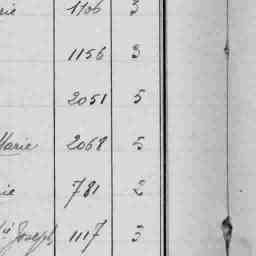 rie 1706 3
1156 3
2051 5
Marie 2068 5
rie 781 2
Joseph 1117 3